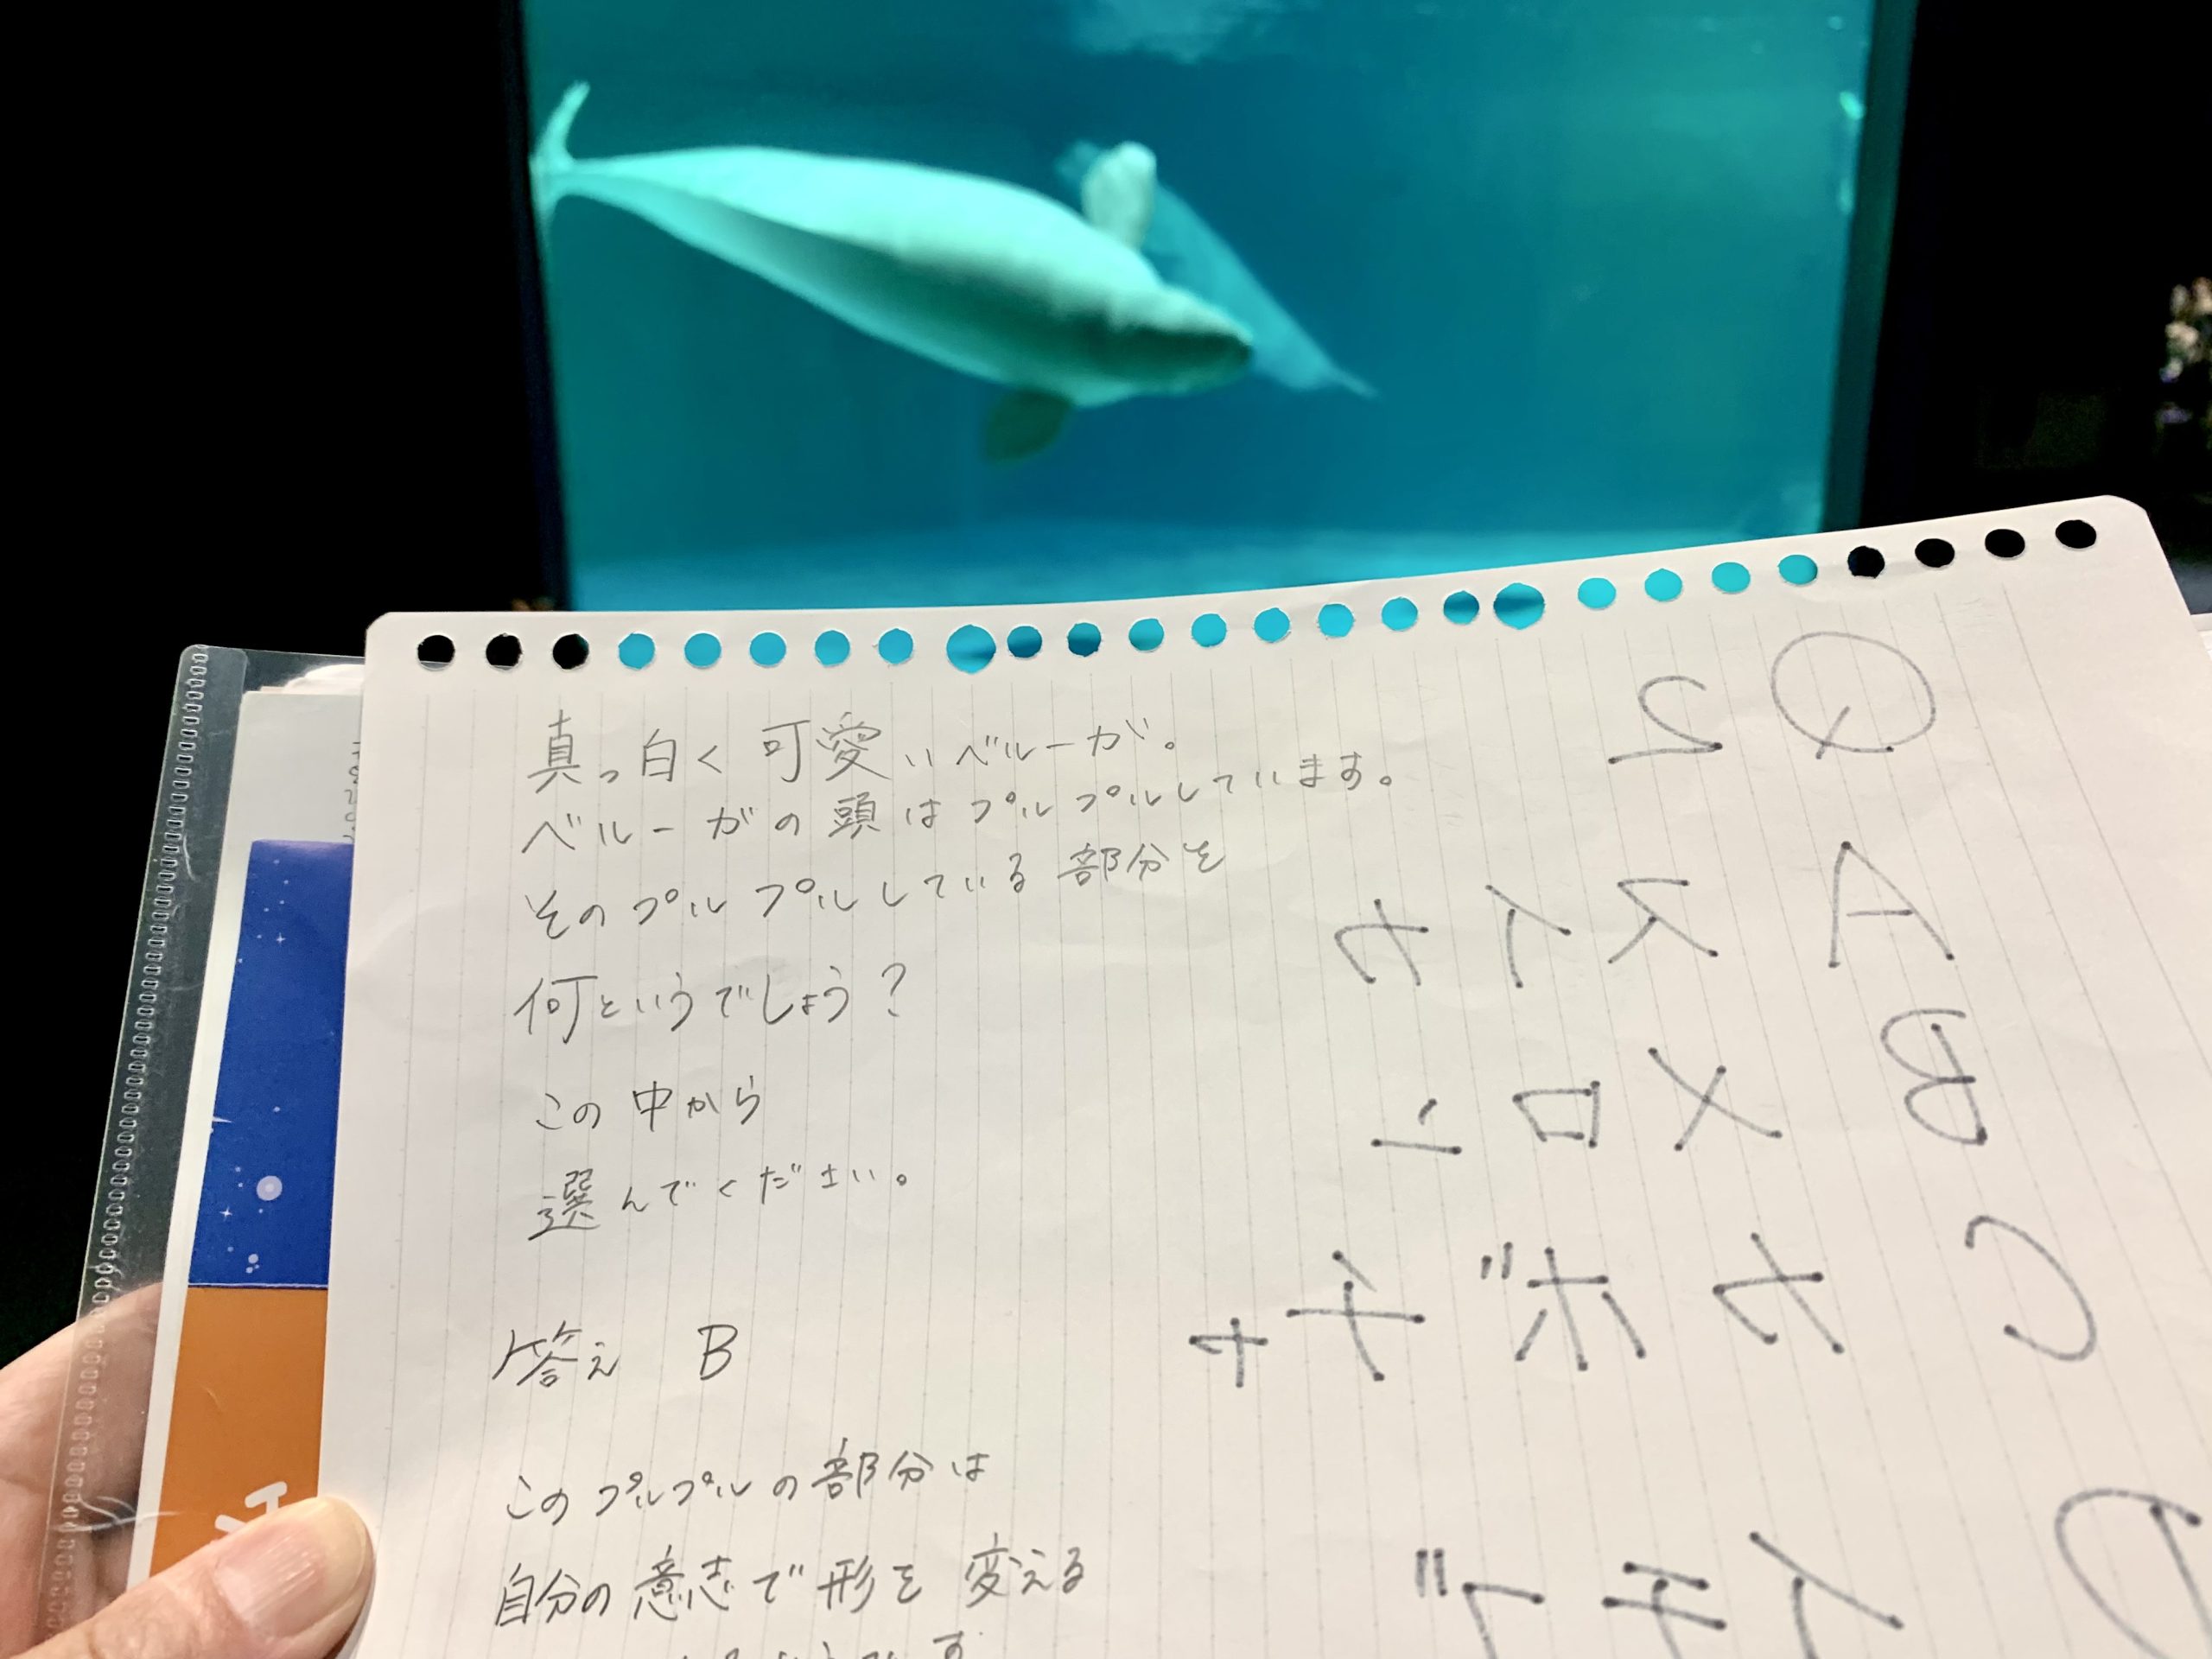 真っ白く可愛いベルーガ。
ベルーガの頭はプルプルしています。
そのプルプルしている部分を
何というでしょう？
この中から
選んでください。
答え B
このプルプルの部分は
自分の意志で形を変える
Q2
A スイカ
B メロン
C カボチャ
D イチゴ